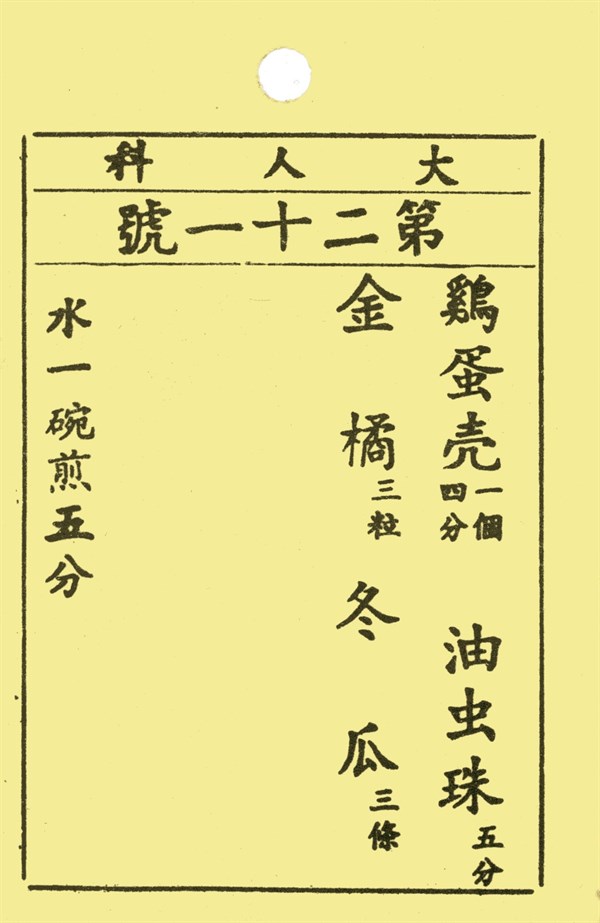 大人科
第二十一號
鷄蛋壳一個四分 油虫珠五分
金橘三粒 冬瓜三條
水一碗煎五分